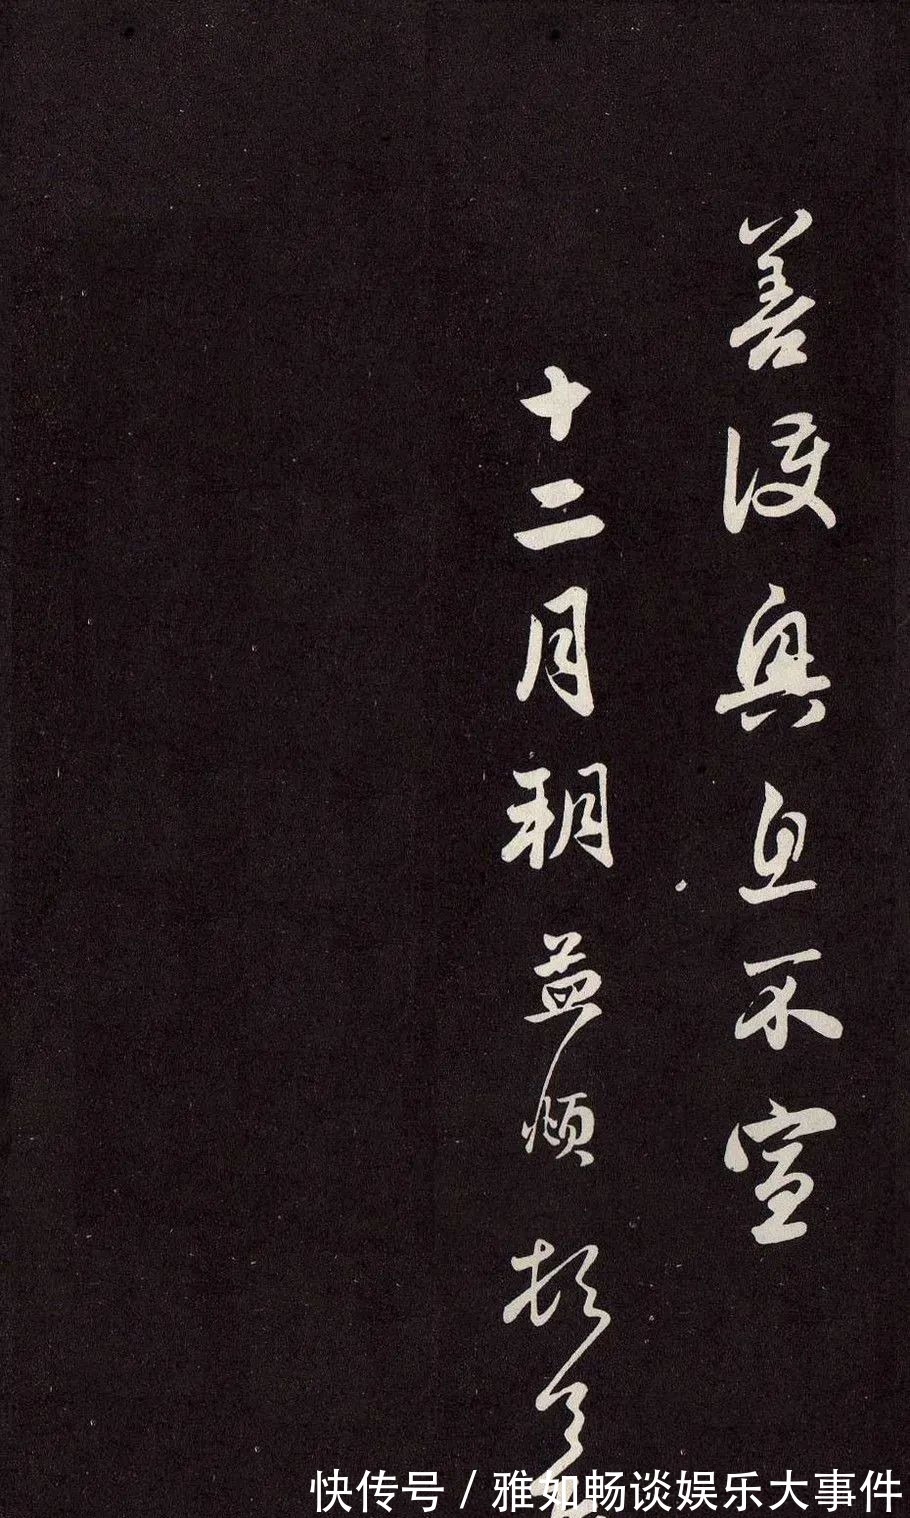 善護興居不宣
十二月朔孟頫頓首
快传号 / 雅如畅谈娱乐大事件